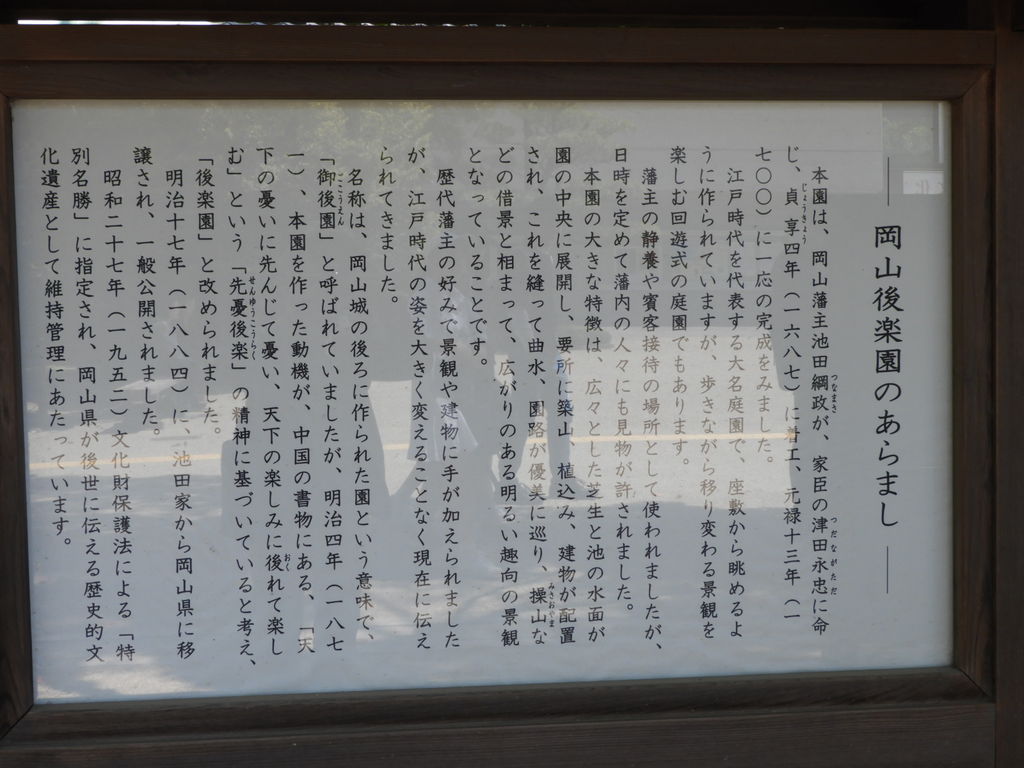 岡山後楽園のあらまし
本園は、岡山藩主池田綱政が、家臣の津田永忠に命
じ、貞享四年(一六八七)に着工、元禄十三年(一
七〇〇)に一応の完成をみました。
江戸時代を代表する大名庭園で、座敷から眺めるよ
うに作られていますが、歩きながら移り変わる景観を
楽しむ回遊式の庭園でもあります。
藩主の静養や賓客接待の場所として使われましたが、
日時を定めて藩内の人々にも見物が許されました。
本園の大きな特徴は、広々とした芝生と池の水面が
園の中央に展開し、要所に築山、植込み、建物が配置
され、これを縫って曲水、園路が優美に巡り、操山な
どの借景と相まって、広がりのある明るい趣向の景観
となっていることです。
歴代藩主の好みで景観や建物に手が加えられました
が、江戸時代の姿を大きく変えることなく現在に伝え
られてきました。
名称は、岡山城の後ろに作られた園という意味で、
「御後園」と呼ばれていましたが、明治四年(一八七
一)、本園を作った動機が、中国の書物にある、「天
下の憂いに先んじて憂い、天下の楽しみに後れて楽し
む」という「先憂後楽」の精神に基づいていると考え、
「後楽園」と改められました。
明治十七年(一八八四)に、池田家から岡山県に移
譲され、一般公開されました。
昭和二十七年(一九五二)文化財保護法による「特
別名勝」に指定され、岡山県が後世に伝える歴史的文
化遺産として維持管理にあたっています。